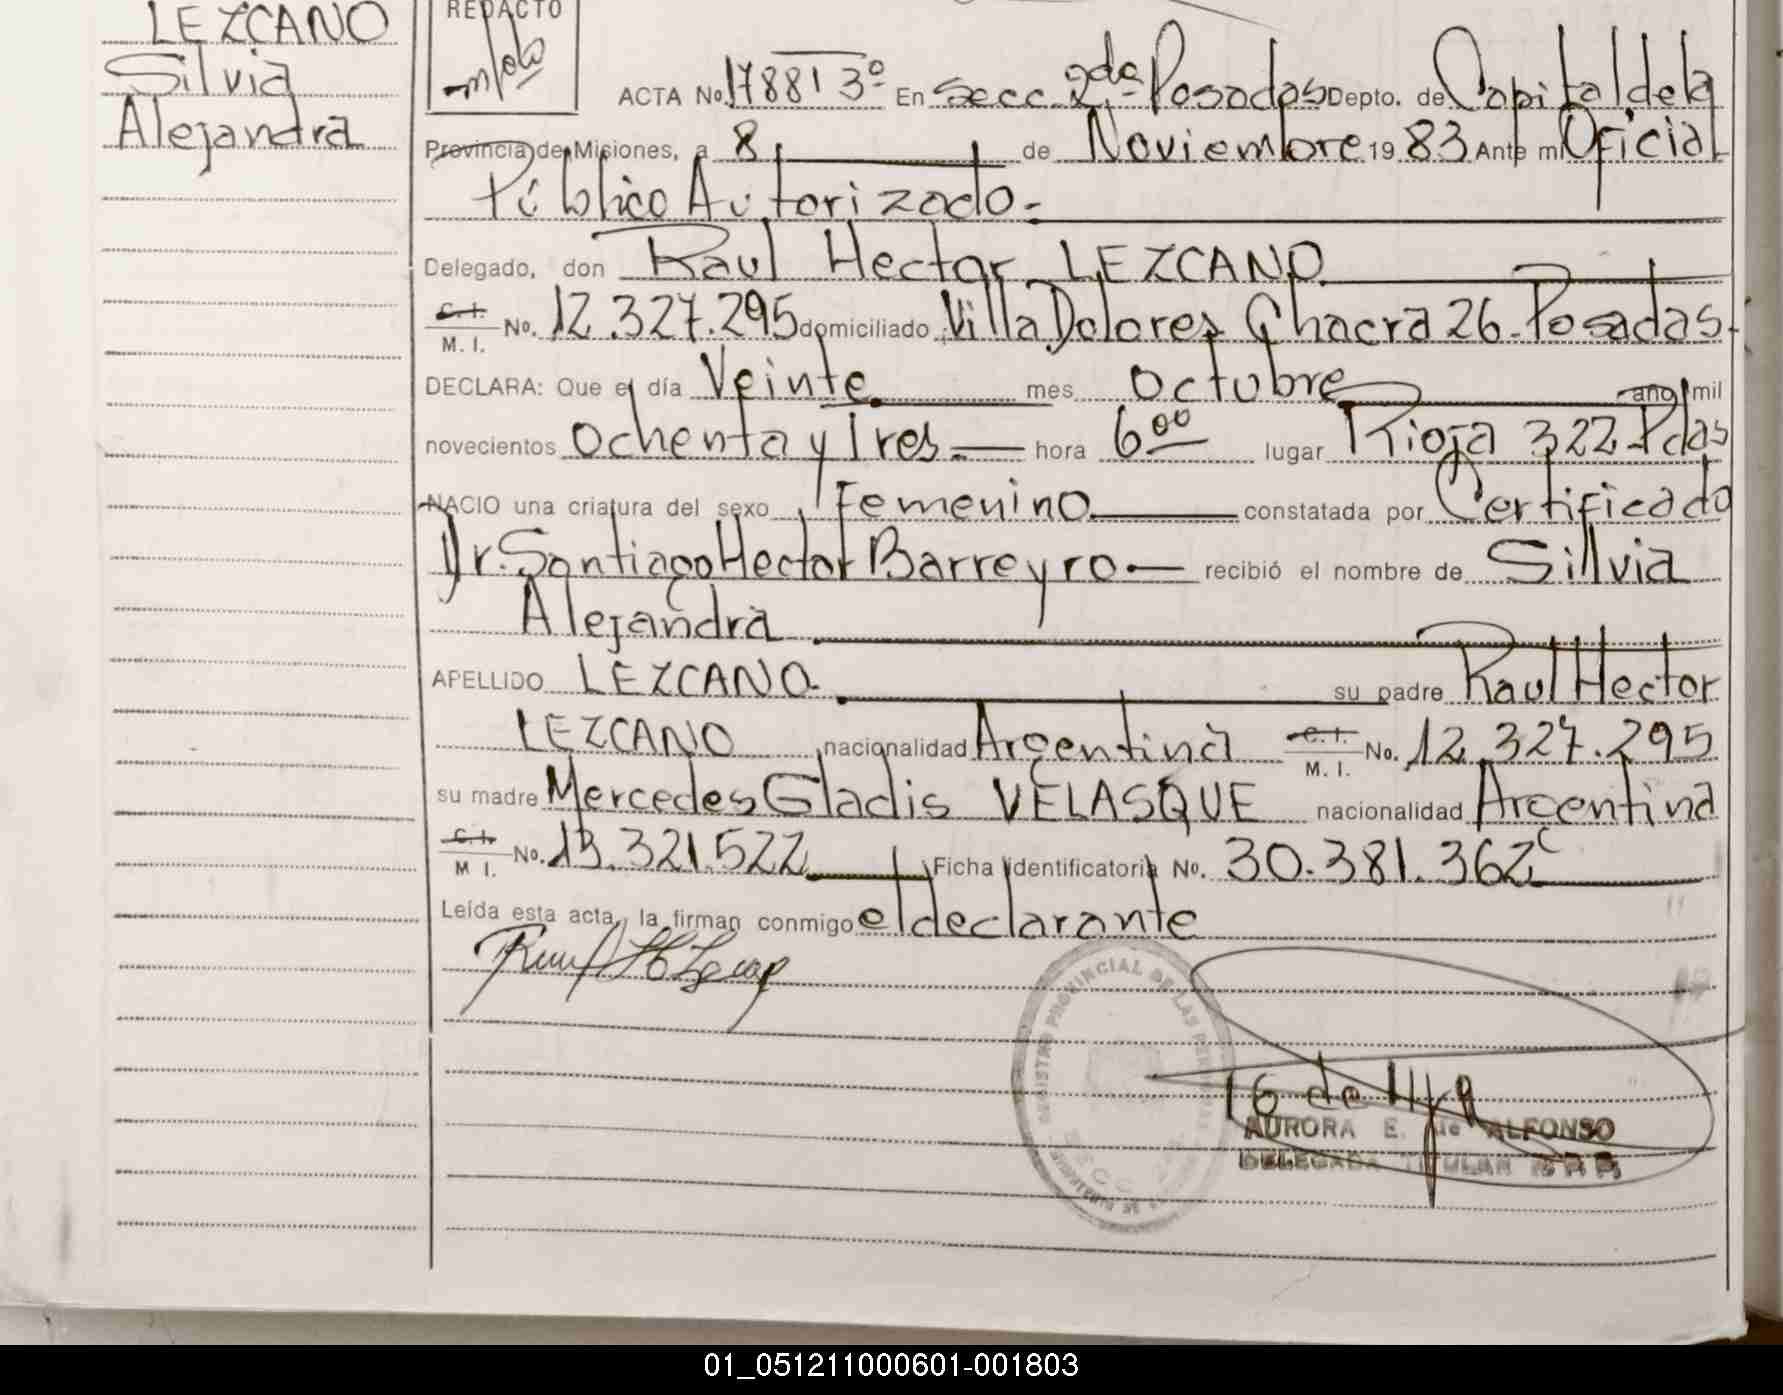 LEZCANO
Silvia
Alejandra
REDACTO
ACTA No. 1788 T 3º En Secc. 2da Posadas Depto. de Capital de la
Provincia de Misiones, a 8 de Noviembre 19 83 Ante mi Oficial
Público Autorizado.-
Delegado, don Raul Hector LEZCANO
C. I. M. I. No. 12.327.295 domiciliado Villa Dolores Chacra 26-Posadas.
DECLARA: Que el día Veinte mes octubre año mil
novecientos ochenta y Tres hora 6 00 lugar Rioja 322 Pdas
NACIO una criatura del sexo Femenino constatada por Certificado
Dr. Santiago Hector Barreyro.- recibió el nombre de Sillvia
Alejandra
APELLIDO LEZCANO. su padre Raul Hector
LEZCANO nacionalidad Argentina C. I. M. I. No. 12.327.295
su madre Mercedes Gladis VELASQUE nacionalidad Argentina
C. I. M. I. No. 13.321.522 Ficha Identificatoria No. 30.381.362
Leída esta acta, la firman conmigo el declarante
REGISTRO PROVINCIAL DE LAS PERSONAS
16 de
AURORA E. de ALFONSO
DELEGADA TITULAR R P P
01_051211000601-001803